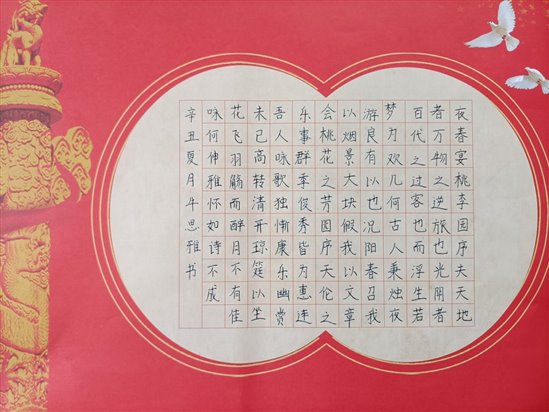 夜春宴桃李园序夫天地
者万物之逆旅也光阴者
百代之过客也而浮生若
梦为欢几何古人秉烛夜
游良有以也况阳春召我
以烟景大块假我以文章
会桃花之芳园序天伦之
乐事群季俊秀皆为惠连
吾人咏歌独惭康乐幽赏
未已高转清开琼筵以坐
花飞羽觞而醉月不有佳
咏何伸雅怀如诗不成
辛丑夏月牛思雅书